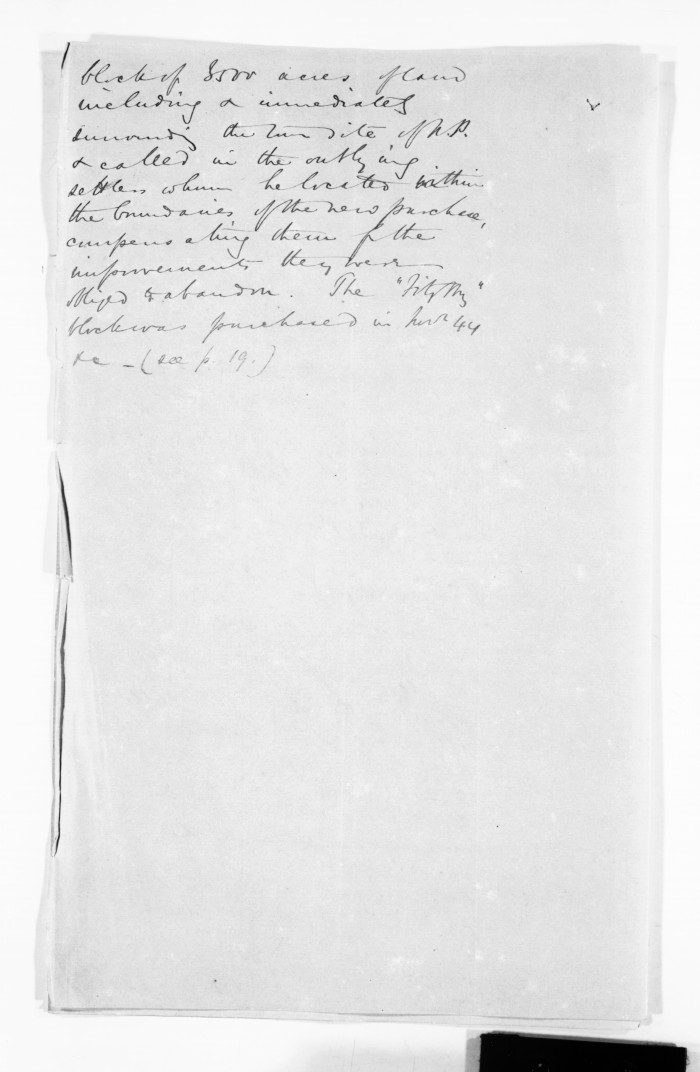 block of 3500 acres of land
including & immediately
surrounding the town site of N.P.
& called in the outlying
settlers whom he located within
the boundaries of the new purchase,
compensating them for the
improvements they were
obliged to abandon. The "FitzRoy"
block was purchased in Novr 44
&c - (see p. 19.)